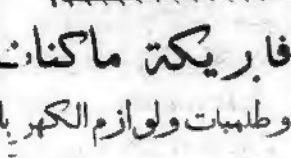 فاريكة ماكنات
وطلمبات ولوازم الكهربا